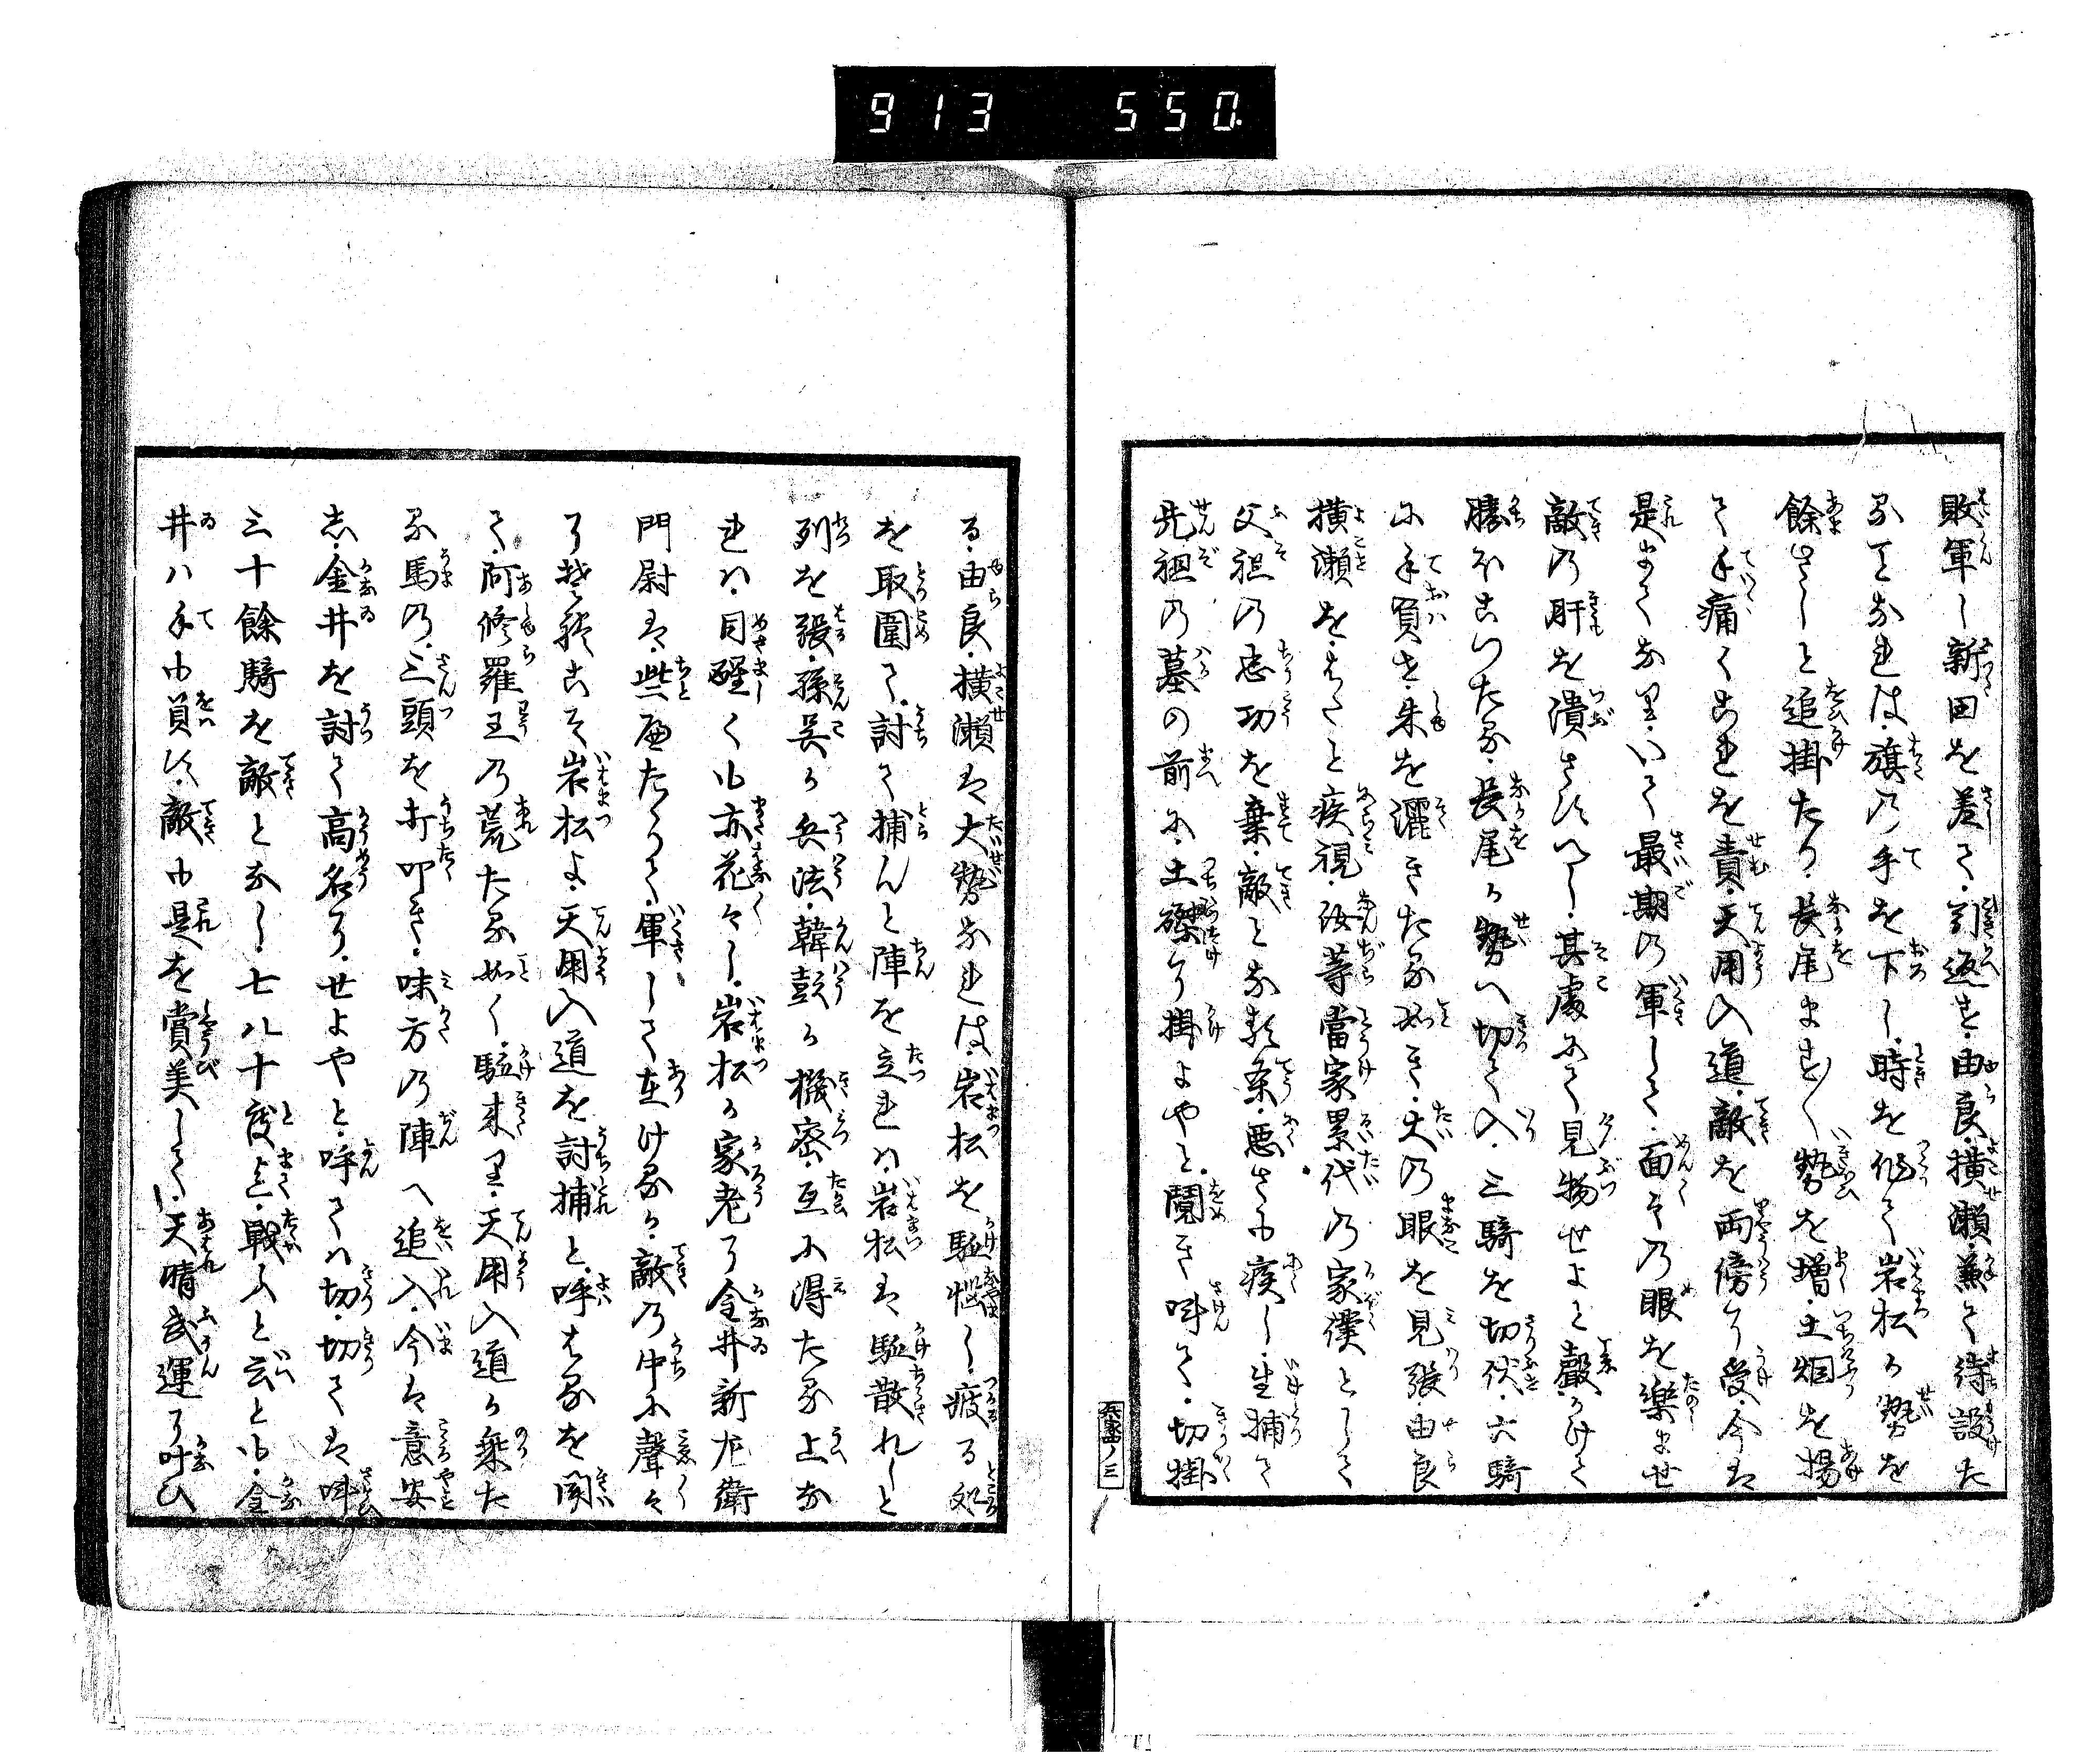 913 550
敗軍し新田を差て引返す由良横瀬兼て待設た
る事なれは旗の手を下し時を作て岩松か勢を
餘さしと追掛たり長尾ます〳〵勢を増土烟を揚
て手痛くこれを責天用入道敵を両傍に受今は
是まてなりいて最期の軍して面々の眼を楽ませ
敵の肝を潰さすへし其處にて見物せよと聲かけて
勝ほこつたる長尾か勢へ切て入三騎を切伏六騎
に手負せ朱を灑きたる如き大の眼を見張由良
横瀬をはたと疾視汝等當家累代の家僕として
父祖の忠功を棄敵となる条悪さも疾し生捕て
先祖の墓の前に土磔に掛よやと鬩き呌て切掛
兵家四ノ三
る由良横瀬は大勢なれは岩松を駈悩し疲る処
を取圍て討て捕んと陣を立れハ岩松は駈散れしと
列を張孫呉か兵法韓彭か機密互に得たる上な
れハ目醒くも亦花々し岩松か家老に金井新左衛
門尉は些廉たつて軍して在けるか敵の中に聲々
に楚籠こそ岩松よ天用入道を討捕と呼はるを聞
て阿修羅王の荒たる如く駈来り天用入道か乗た
る馬の三頭を打叩き味方の陣へ追入今は意安
し金井を討て高名に世よやと呼てハ切切ては呌
三十餘騎を敵となし七八十度迄戦ふと云とも金
井ハ手も負ハす敵も是を賞美して天晴武運に叶ひ